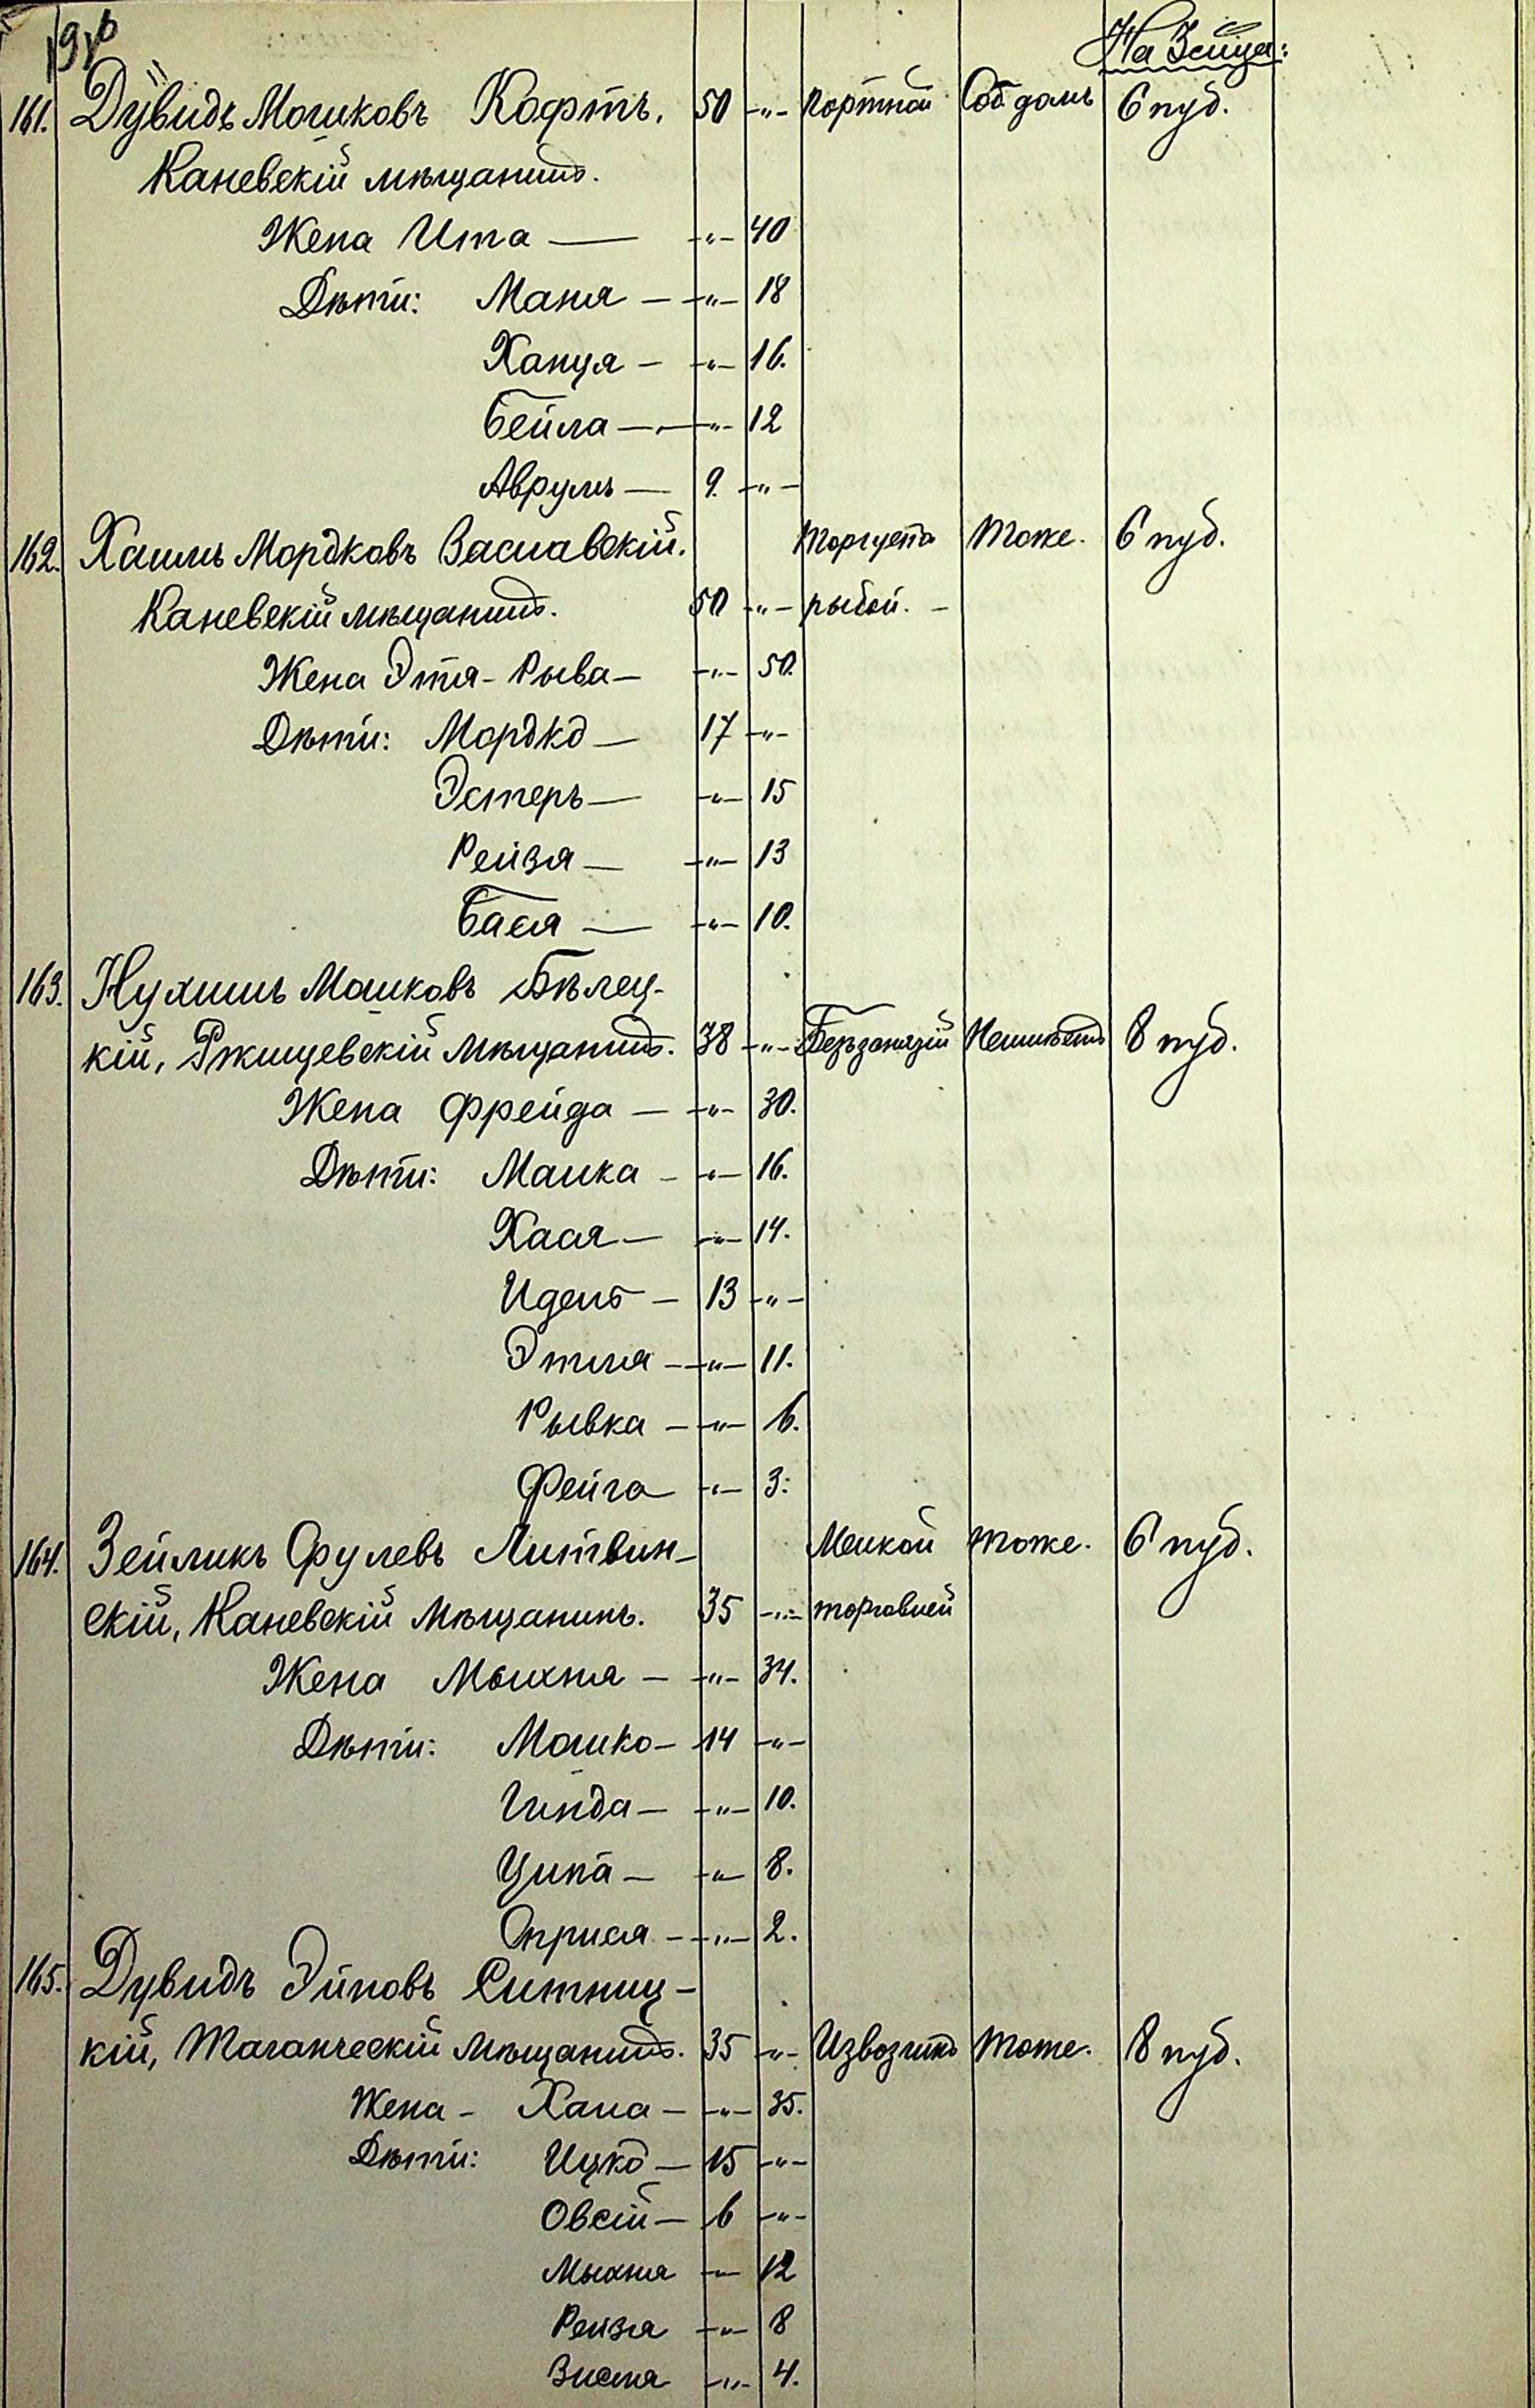 На Зейца:
161. Дувидъ Мошковъ Кофтъ. 50 -"- Портной Соб. домъ 6 пуд.
Каневскій мѣщанинъ.
Жена Ита — -"- 40
Дѣти: Маня — -"- 18
Ханця — -"- 16.
Бейла — -"- 12
Аврумъ — 9. -"-
162. Хаимъ Мордковъ Заславскій. Торгуетъ Тоже. 6 пуд.
Каневскій мѣщанинъ. 50 -"- рыбой. -
Жена Этя-Рыва — -"- 50.
Дѣти: Мордко — 17 -"-
Эстеръ — -"- 15
Рейзя — -"- 13
Бася — -"- 10.
163. Нухимъ Мошковъ Бѣлец-
кій, Ржищевскій мѣщанинъ. 38 -"- Безъ занятій Неимѣетъ 8 пуд.
Жена Фрейда — -"- 30.
Дѣти: Малка — -"- 16.
Хася — -"- 14.
Идель — 13 -"-
Этля — -"- 11.
Рывка — -"- 6.
Фейга -"- 3.
164. Зейликъ Срулевъ Литвин-
Мелкой Тоже. 6 пуд.
скій, Каневскій мѣщанинъ. 35 -"- торговлей
Жена Мыхня — -"- 34.
Дѣти: Мошко — 14 -"-
Гинда — -"- 10.
Ципа — -"- 8.
Оприся — -"- 2.
165. Дувидъ Эйновъ Ситниц-
кій, Таганческій мѣщанинъ. 35 -"- Извозчикъ Тоже. 8 пуд.
Жена - Хана — -"- 35.
Дѣти: Ицко — 15 -"-
Овсій — 6 -"-
Мыхня -"- 12
Рейзя -"- 8
Зисля -"- 4.